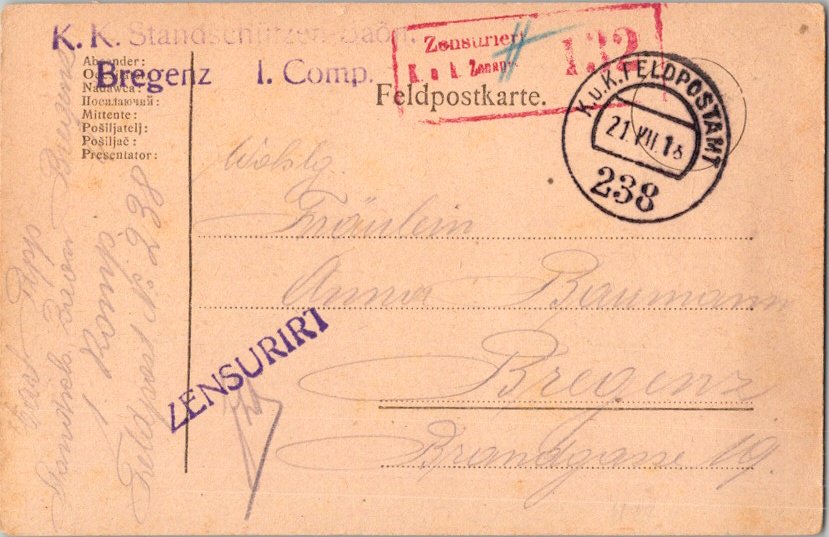 K. K. Standschützen-Baon.
Bregenz I. Comp.
Zensuriert
K. u. k. Zensur
132
Feldpostkarte.
K.u.K. FELDPOSTAMT
21.VII.16
238
Absender:
Nadawca:
Посилаючий:
Mittente:
Pošiljatelj:
Pošiljač:
Presentator:
Wohlg.
Fräulein
Anna Baumann
Bregenz
Brandgasse 19.
ZENSURIRT
Standsch. Baon Bregenz
1 Komp
Feldpost Nº 238